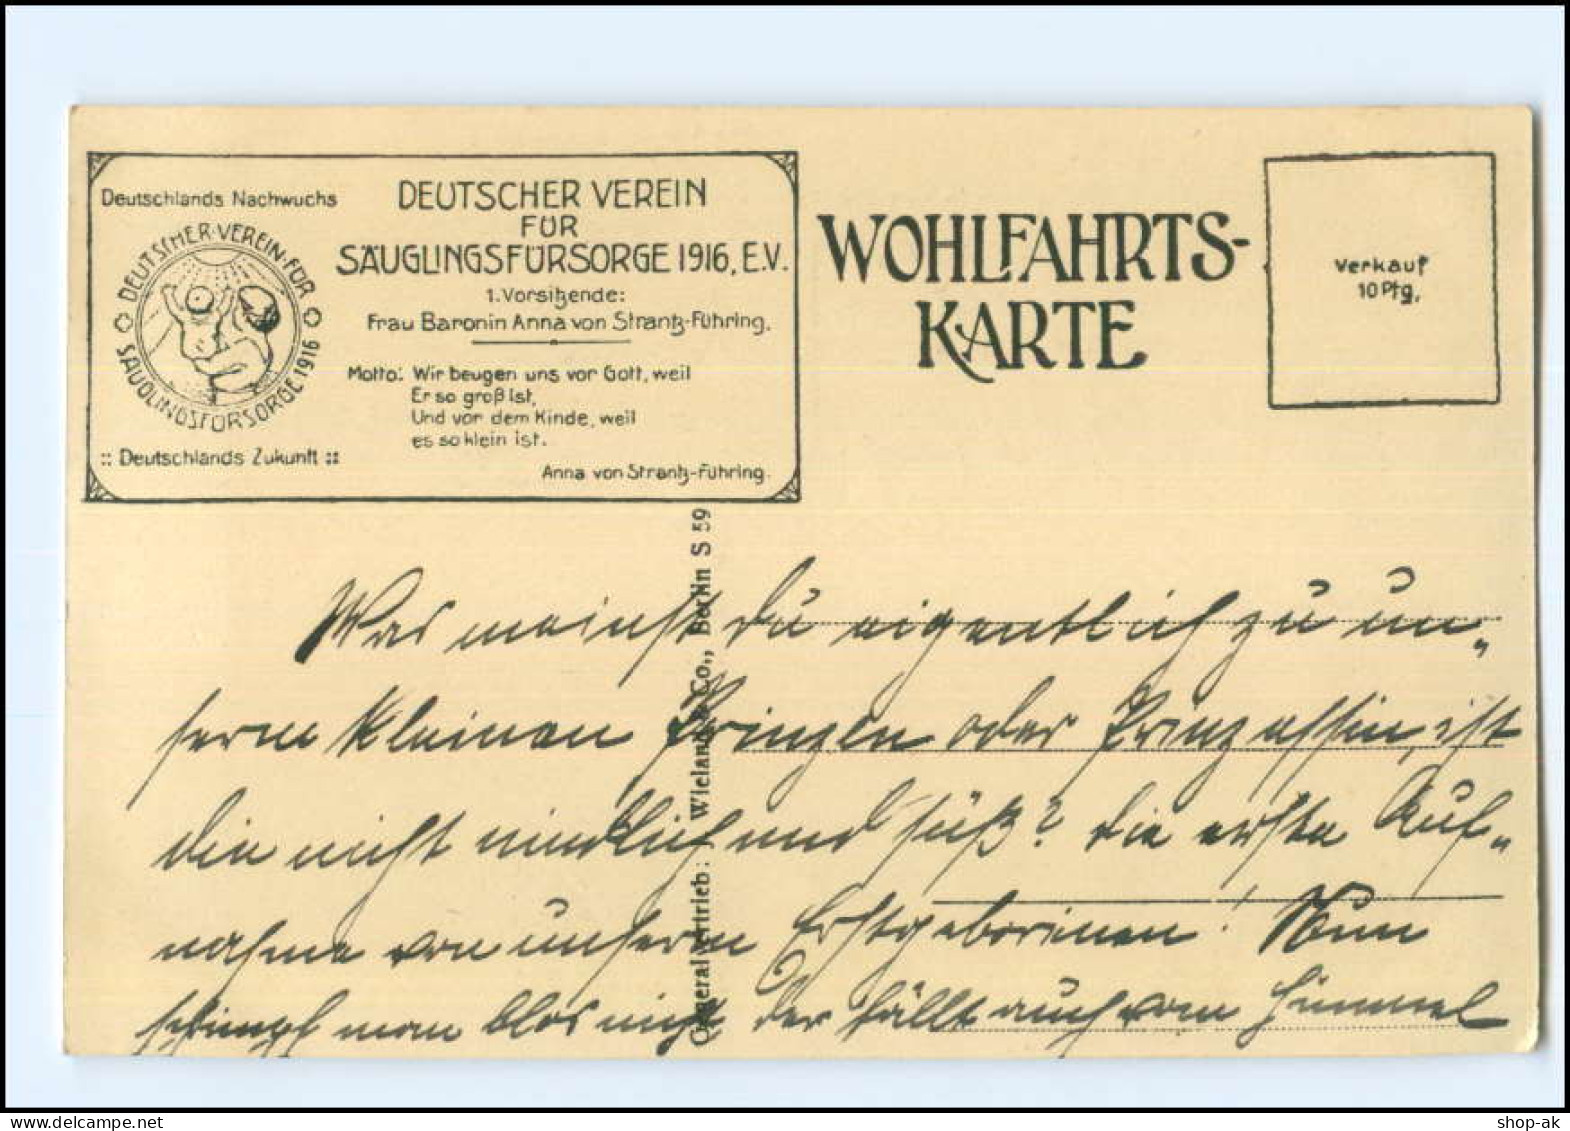 Deutschlands Nachwuchs
DEUTSCHER VEREIN FÜR
SÄUGLINGSFÜRSORGE 1916
:: Deutschlands Zukunft ::
DEUTSCHER VEREIN
FÜR
SÄUGLINGSFÜRSORGE 1916, E.V.
1. Vorsitzende:
Frau Baronin Anna von Strantz-Führing.
Motto: Wir beugen uns vor Gott, weil
Er so groß ist,
Und vor dem Kinde, weil
es so klein ist.
Anna von Strantz-Führing.
WOHLFAHRTS-
KARTE
Verkauf
10 Pfg.
Generalvertrieb: Wieland & Co., Berlin S 59
Was meinst du eigentlich zu un-
serm kleinen Prinzen oder Prinzessin, ist
die nicht niedlich und süß? die erste Auf-
nahme von unserm Erstgeborinen! Nun
schimpf man blos nicht der fällt auch vom Himmel
shop-ak